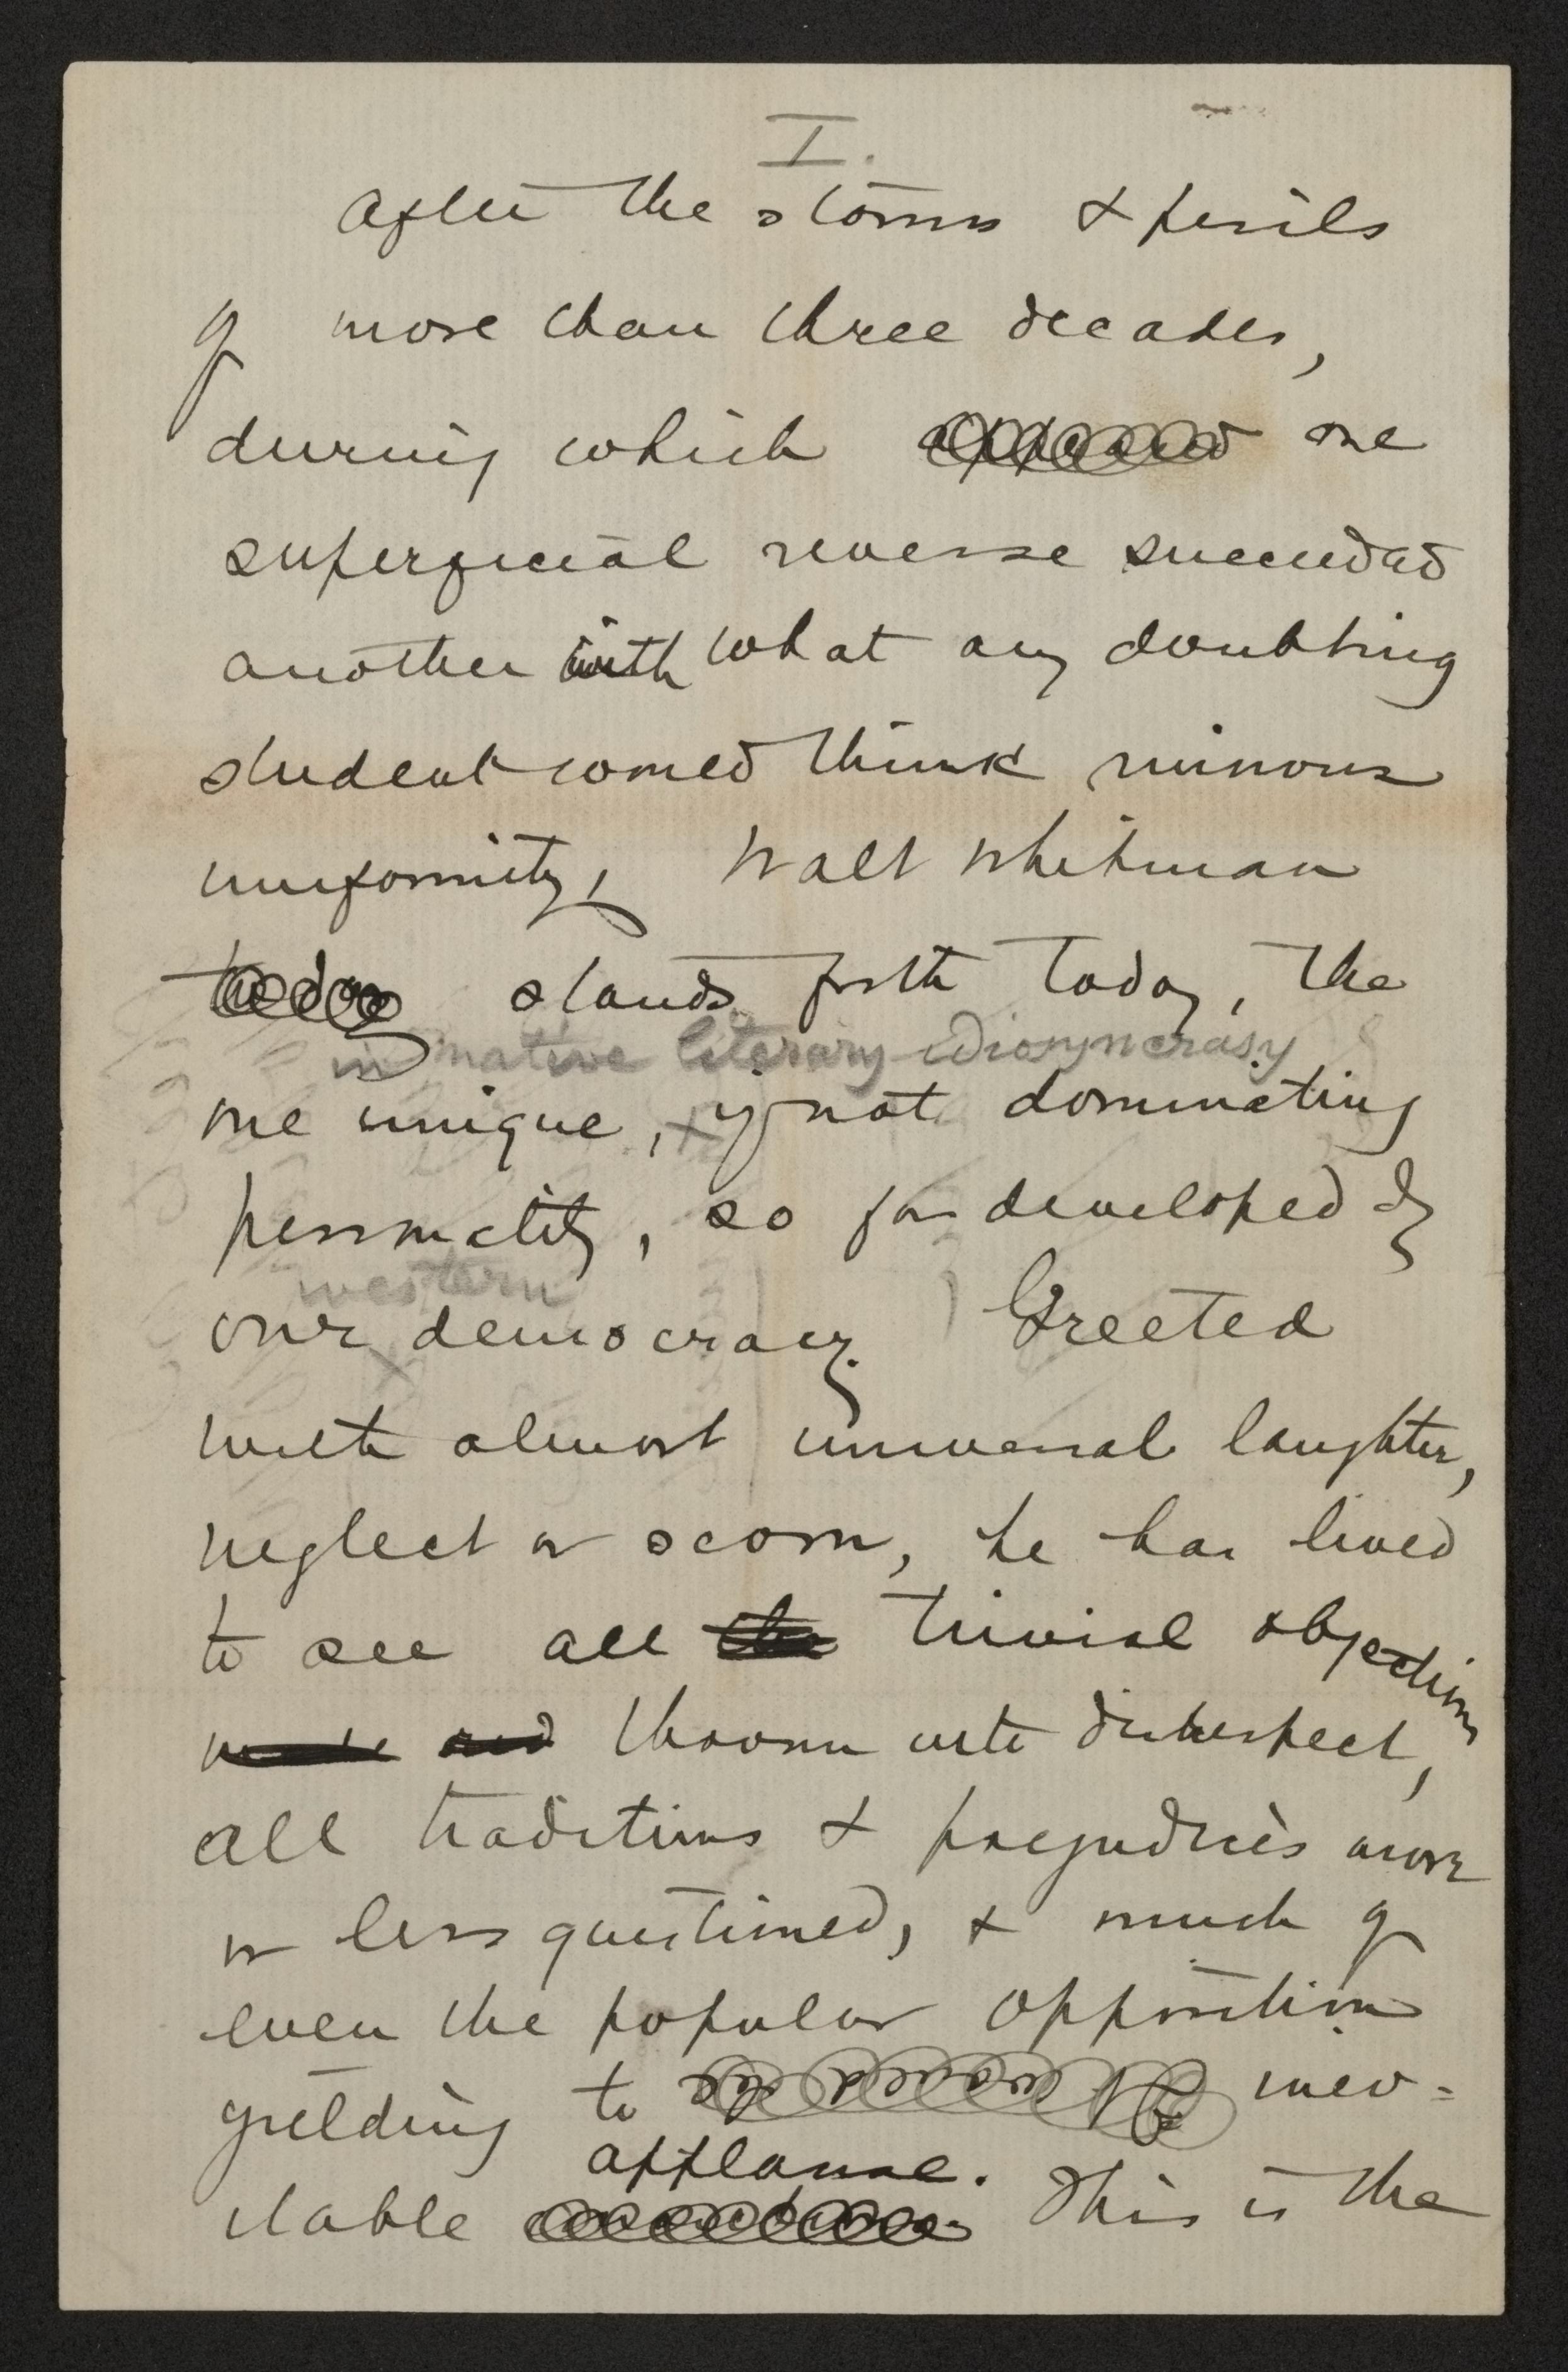 I.
After the storms & perils
of more than three decades,
during which appeared one
superficial reverse succeeded
another with what any doubting
student would think ruinous
uniformity, Walt Whitman
today stands forth today, the
in native literary idiosyncrasy
one unique, if not dominating
personality, so far developed by
western
our democracy. Greeted
with almost universal laughter,
neglect or scorn, he has lived
to see all the trivial objections
and thrown into disrespect,
all traditions & prejudices more
or less questioned, & much of
even the popular opposition
yielding to inev=
applause.
itable This is the